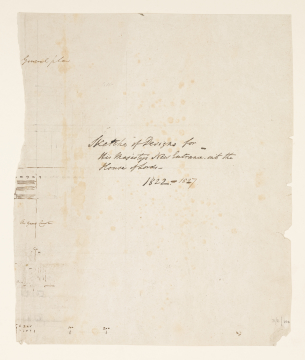 General plan
Sketches of Designs for
His Majestys New Entrance at the
House of Lords
1822 - 1827